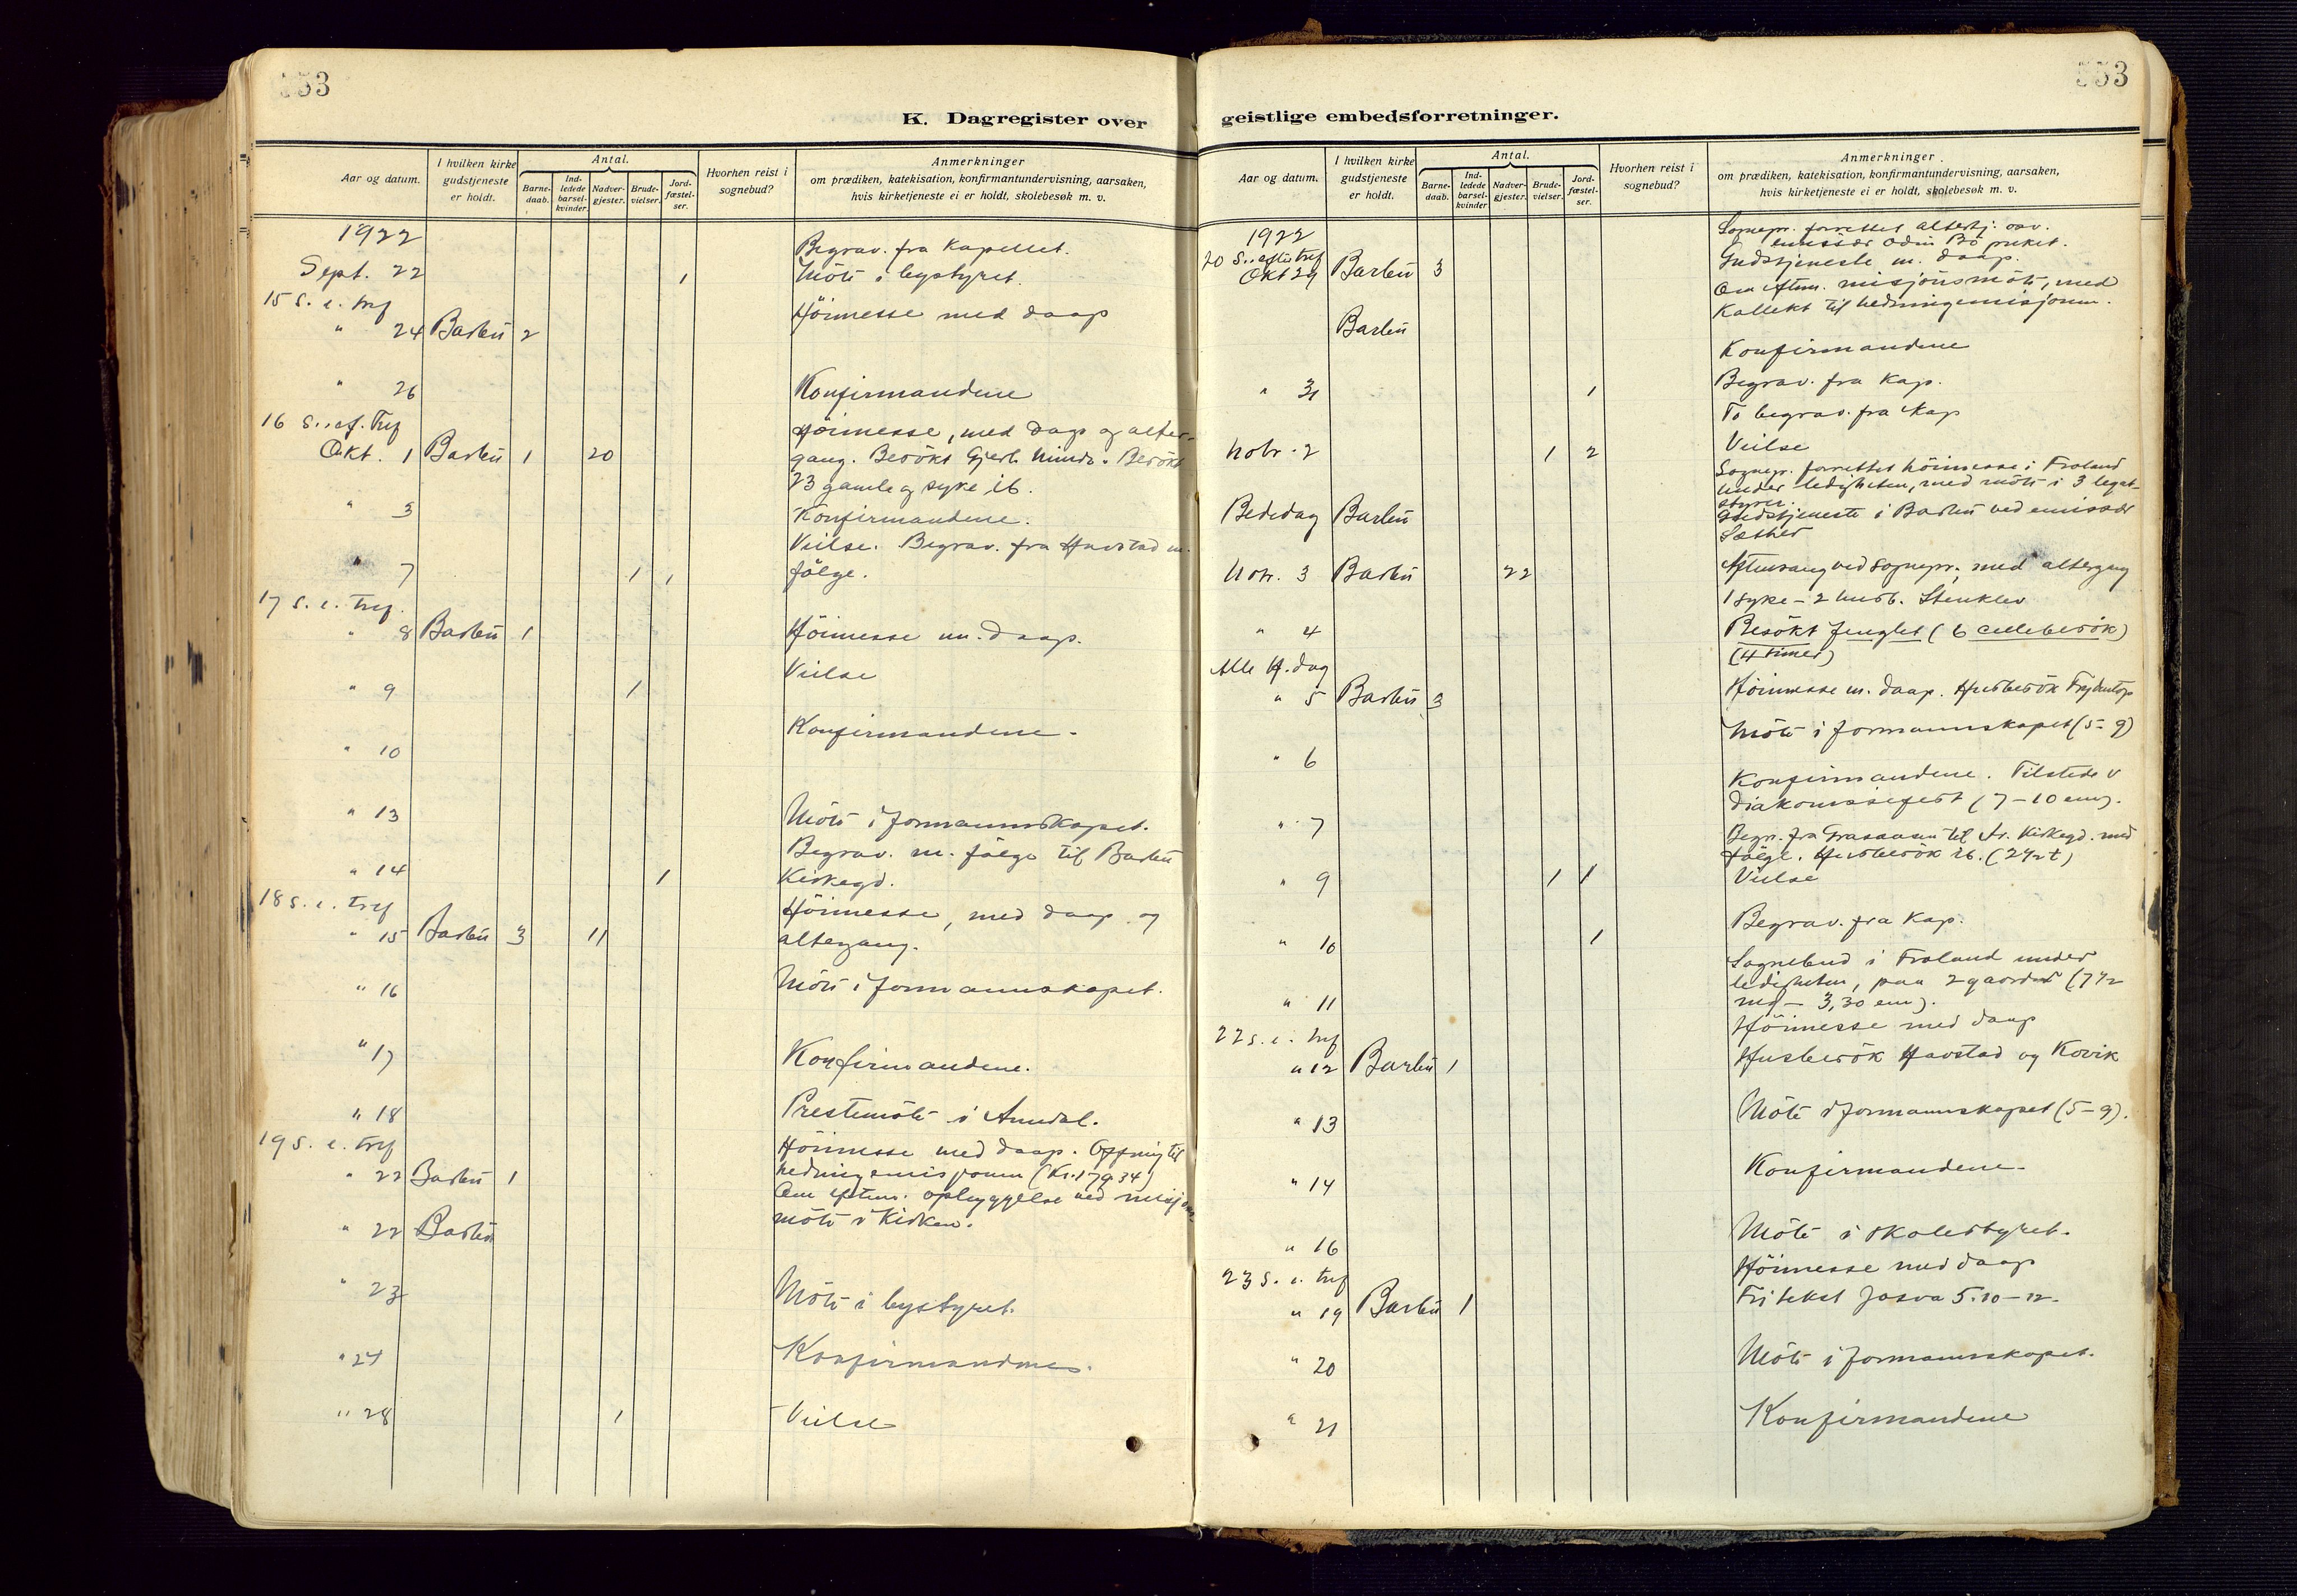 553
K. Dagregister over
Aar og datum.
I hvilken kirke gudstjeneste er holdt.
Antal.
Barne-daab.
Ind-ledede barsel-kvinder.
Nadver-gjester.
Brude-vielser.
Jord-fæstel-ser.
Hvorhen reist i sognebud?
Anmerkninger
om prædiken, katekisation, konfirmantundervisning, aarsaken,
hvis kirketjeneste ei er holdt, skolebesøk m. v.
1922
Begrav. fra Kapellet.
Sept. 22 1 Möte i bystyret.
15 S. e. tref
" 24 Barbu 2 Höimesse med daap
" 26 Konfirmandene
16 S. ef. Tref Höimesse, med daap og alter-
Okt. 1 Barbu 1 20 gang. Besökt Gjerh. Besökt
23 gamle og syke ib.
" 3 Konfirmandene.
Vielse. Begrav. fra Havstad m.
" 7 1 1 fölge.
17 S. e. tref.
" 8 Barbu 1 Höimesse m. daap.
" 9 1 Vielse
" 10 Konfirmandene.
" 13 Möte i formannskapet.
Begrav. m. fölge til Barbu
" 14 1 Kirkegd.
18 S. e. tref Höimesse, med daap og
" 15 Barbu 3 11 altergang.
" 16 Möte i formannskapet.
" 17 Konfirmandene.
" 18 Prestemöte i Arendal.
19 S. e. tref Höimesse med daap. Offring til
" 22 Barbu 1 hedningemisjonen (Kr. 179.34)
Om eftm. opbyggelse ved misjons
" 22 Barbu möte i Kirken.
" 23 Möte i bystyret.
" 24 Konfirmandene.
" 28 1 Vielse
553
geistlige embedsforretninger.
Aar og datum.
I hvilken kirke gudstjeneste er holdt.
Antal.
Barne-daab.
Ind-ledede barsel-kvinder
Nadver-gjester.
Brude-vielser.
Jord-fæstel-ser.
Hvorhen reist i sognebud?
Anmerkninger.
om prædiken, katekisation, konfirmantundervisning, aarsaken,
hvis kirketjeneste ei er holdt, skolebesøk m. v.
1922 Sognepr. forrettet altertj. og
20 S. efter tref emissær Odin Bö preket.
Okt 29 Barbu 3 Gudstjeneste m. daap.
Om eftm. misjonsmöte, med
Barbu Kollekt til hedningemisjonen.
Konfirmandene
" 31 1 Begrav. fra Kap.
To begrav. fra Kap
Nobr. 2 1 2 Vielse
Sognepr. forrettet höimesse i Froland
under ledigheten, med möte i 3 legat-
styrer.
Bededag Barbu Gudstjeneste i Barbu ved emissær
Sæther
Nov. 3 Barbu 22 Aftensang ved sognepr., med altergang
1 syke - 2 husb. Stenklev
" 4 Besökt fengslet (6 cellebesök)
(4 timer)
Alle H. dag
" 5 Barbu 3 Höimesse m. daap. Husbesök Frydentop
" 6 Möte i formannskapet (5-9)
Konfirmandene. Tilstede v
" 7 diakonissefest (7-10 em).
Begr. fra Graaaasen til Ar. Kirkegd. med
fölge. Husbesök ib. (2 1/2 t)
" 9 1 1 Vielse
" 10 1 Begrav. fra Kap.
Sognebud i Froland under
ledigheten, paa 2 gaarder (7 1/2
" 11 mg - 3,30 em).
22 S. e. tref Höimesse med daap
" 12 Barbu 1 Husbesök Havstad og Kovik
" 13 Möte i formannskapet (5-9).
" 14 Konfirmandene.
" 16 Möte i skolestyret.
23 S. e. tref Höimesse med daap
" 19 Barbu 1 Fri tekst Josva 5.10-12.
" 20 Möte i formannskapet.
" 21 Konfirmandene